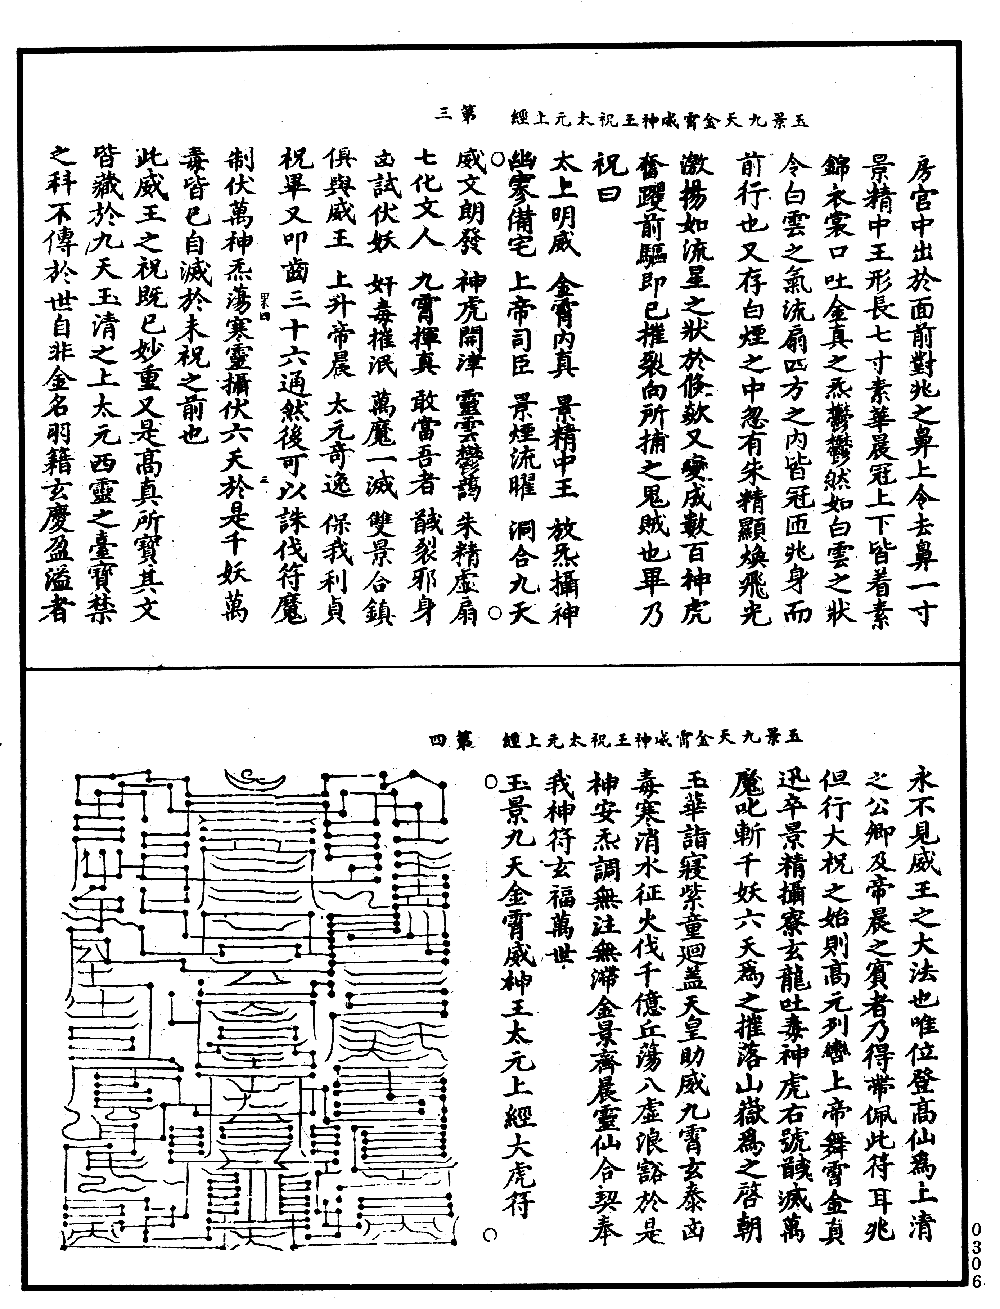 玉景九天金霄威神王祝太元上經　第三
房宮中出於面前對兆之鼻上令去鼻一寸
景精中王形長七寸素華晨冠上下皆着素
錦衣裳口吐金真之炁鬱鬱然如白雲之狀
令白雲之氣流扇四方之內皆冠匝兆身而
前行也又存白煙之中忽有朱精顯煥飛光
激揚如流星之狀於倏欻又變成數百神虎
奮躍前驅即已摧裂向所捕之鬼賊也畢乃
祝曰
太上明威　金霄內真　景精中王　放炁攝神
幽寥備宅　上帝司臣　景煙流曜　洞合九天
威文朗發　神虎開津　靈雲鬱藹　朱精虛扇
七化文人　九霄揮真　敢當吾者　馘裂邪身
凶試伏妖　奸毒摧泯　萬魔一滅　雙景合鎮
俱與威王　上升帝晨　太元奇逸　保我利貞
祝畢又叩齒三十六通然後可以誅伐符魔
制伏萬神炁蕩寒靈攝伏六天於是千妖萬
毒皆已自滅於未祝之前也
此威王之祝既已妙重又是高真所寶其文
皆藏於九天玉清之上太元西靈之臺寶禁
之科不傳於世自非金名羽籍玄慶盈溢者
玉景九天金霄威神王祝太元上經　第四
永不見威王之大法也唯位登高仙為上清
之公卿及帝晨之賓者乃得帶佩此符耳兆
但行大祝之始則高元列轡上帝舞霄金真
迅卒景精攝寮玄龍吐毒神虎右號馘滅萬
魔叱斬千妖六天為之摧落山嶽為之啓朝
玉華詣寢紫童迴蓋天皇助威九霄玄泰凶
毒寒消水征火伐千億丘蕩八虛浪豁於是
神安炁調無注無滯金景齊晨靈仙合契奉
我神符玄福萬世
玉景九天金霄威神王太元上經大虎符
0306